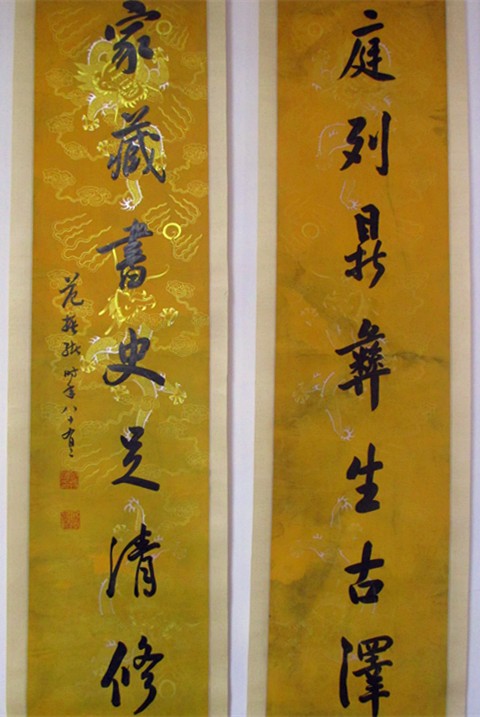 庭列鼎彝生古澤
家藏書史足清修
范振緒時年八十有二